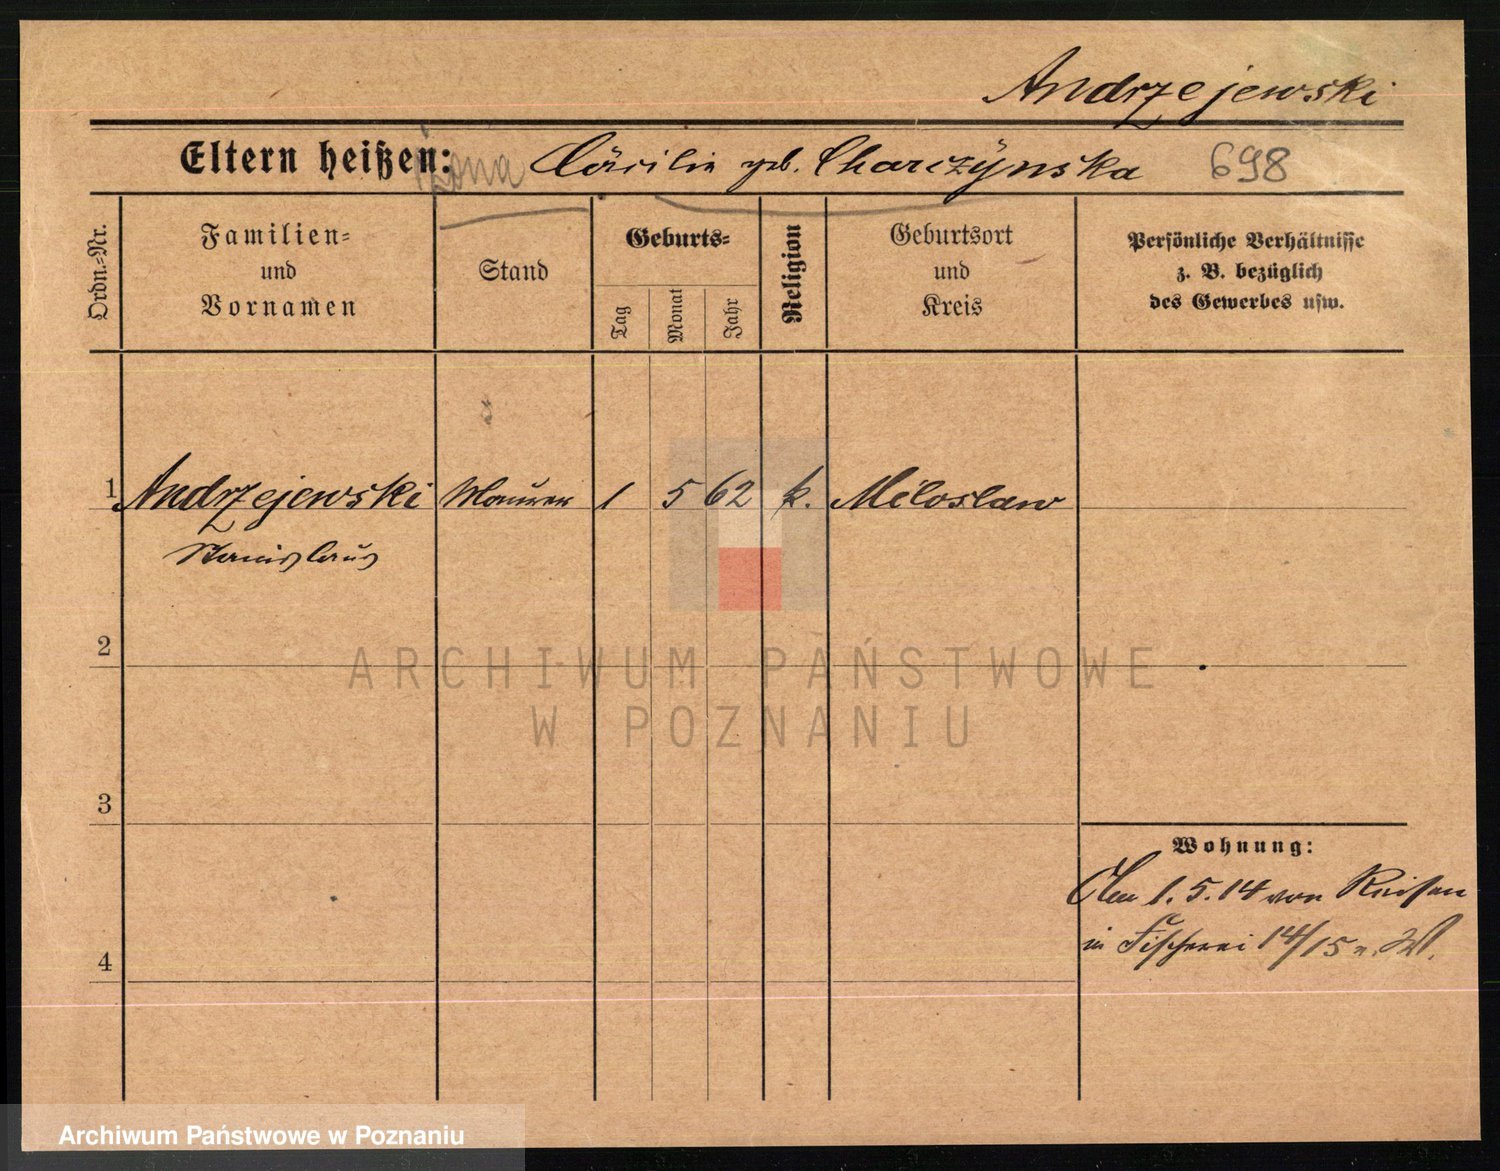 Andrzejewski
Eltern heißen: żona Cäcilie geb. Charczÿnska 698
Ordn.-Nr.
Familien-
und
Vornamen
Stand
Geburts-
Tag
Monat
Jahr
Religion
Geburtsort
und
Kreis
Persönliche Verhältnisse
z. B. bezüglich
des Gewerbes usw.
1 Andrzejewski Maurer 1 5 62 k. Miloslaw
Stanislaus
2
ARCHIWUM PAŃSTWOWE
W POZNANIU
3
Wohnung:
Am 1.5.14 von Reisen
in Fischerei 14/15 z. W.
4
Archiwum Państwowe w Poznaniu